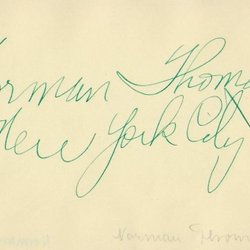 orman Thoma
New York City
Norman Thom